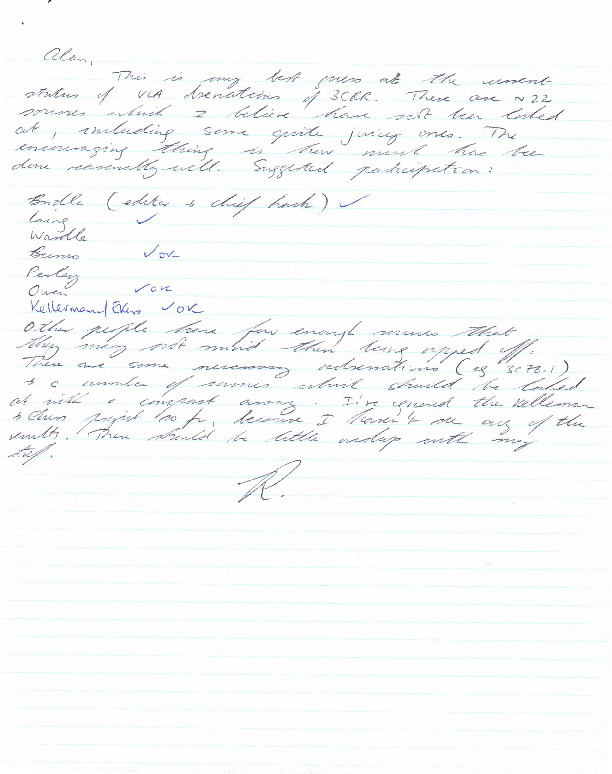 Alan,
This is my best guess at the current
status of VLA observations of 3CRR. There are ~22
sources which I believe have not been looked
at, including some quite juicy ones. The
encouraging thing is how much has been
done reasonably well. Suggested participation:
Bridle (editor & chief hack) ✓
Laing ✓
Wardle
Burns ✓ OK
Perley
Owen ✓ OK
Kellermann/Ekers ✓ OK
Other people have few enough sources that
they may not mind them being ripped off.
There are some necessary observations (eg 3C78.1)
& a number of sources which should be looked
at with a compact array. I've ignored the Kellerman
& Ekers project so far, because I haven't seen any of the
results. There should be little overlap with my
stuff.
R.